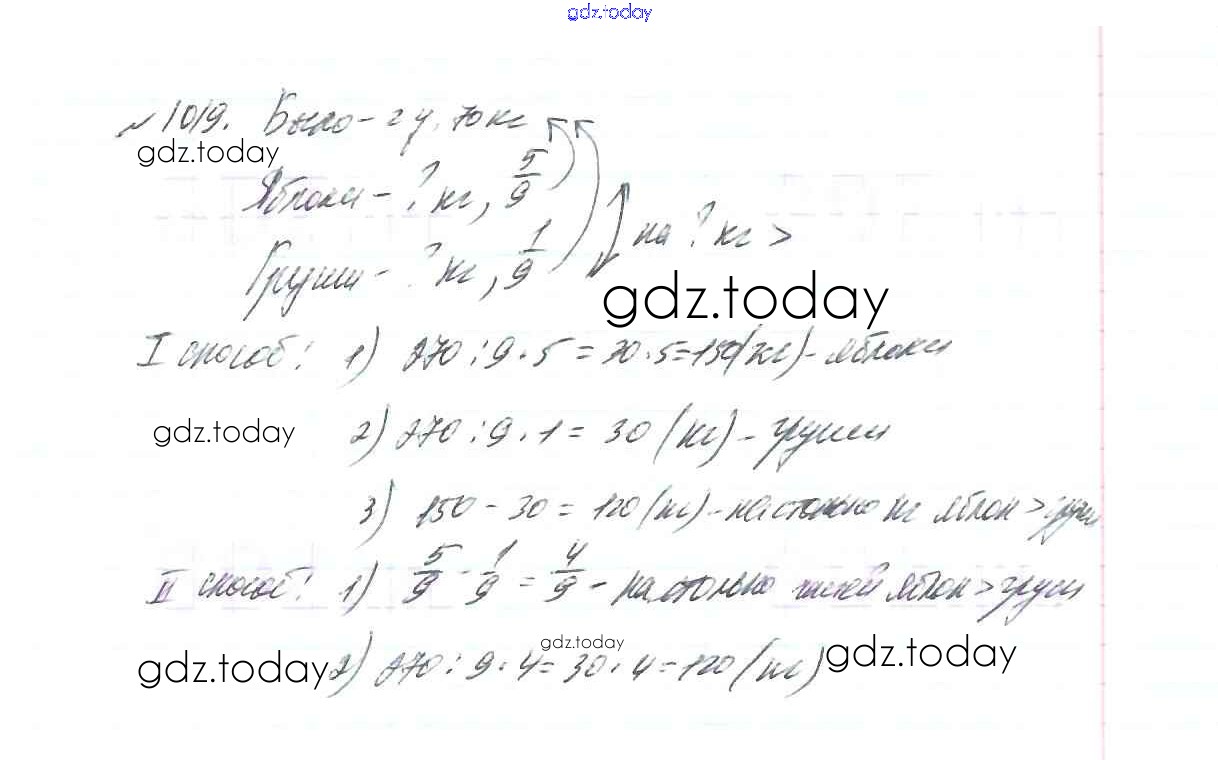 gdz.today
№ 1019. Было - 2 ц. 70 кг
gdz.today
Яблоки - ? кг, 5/9
на ? кг >
Груши - ? кг, 1/9
gdz.today
I способ: 1) 270 : 9 · 5 = 30 · 5 = 150 (кг) - яблоки
gdz.today
2) 270 : 9 · 1 = 30 (кг) - груши
3) 150 - 30 = 120 (кг) - настолько кг яблок > груш
II способ: 1) 5/9 - 1/9 = 4/9 - настолько частей яблок > груш
gdz.today
gdz.today 2) 270 : 9 · 4 = 30 · 4 = 120 (кг) gdz.today